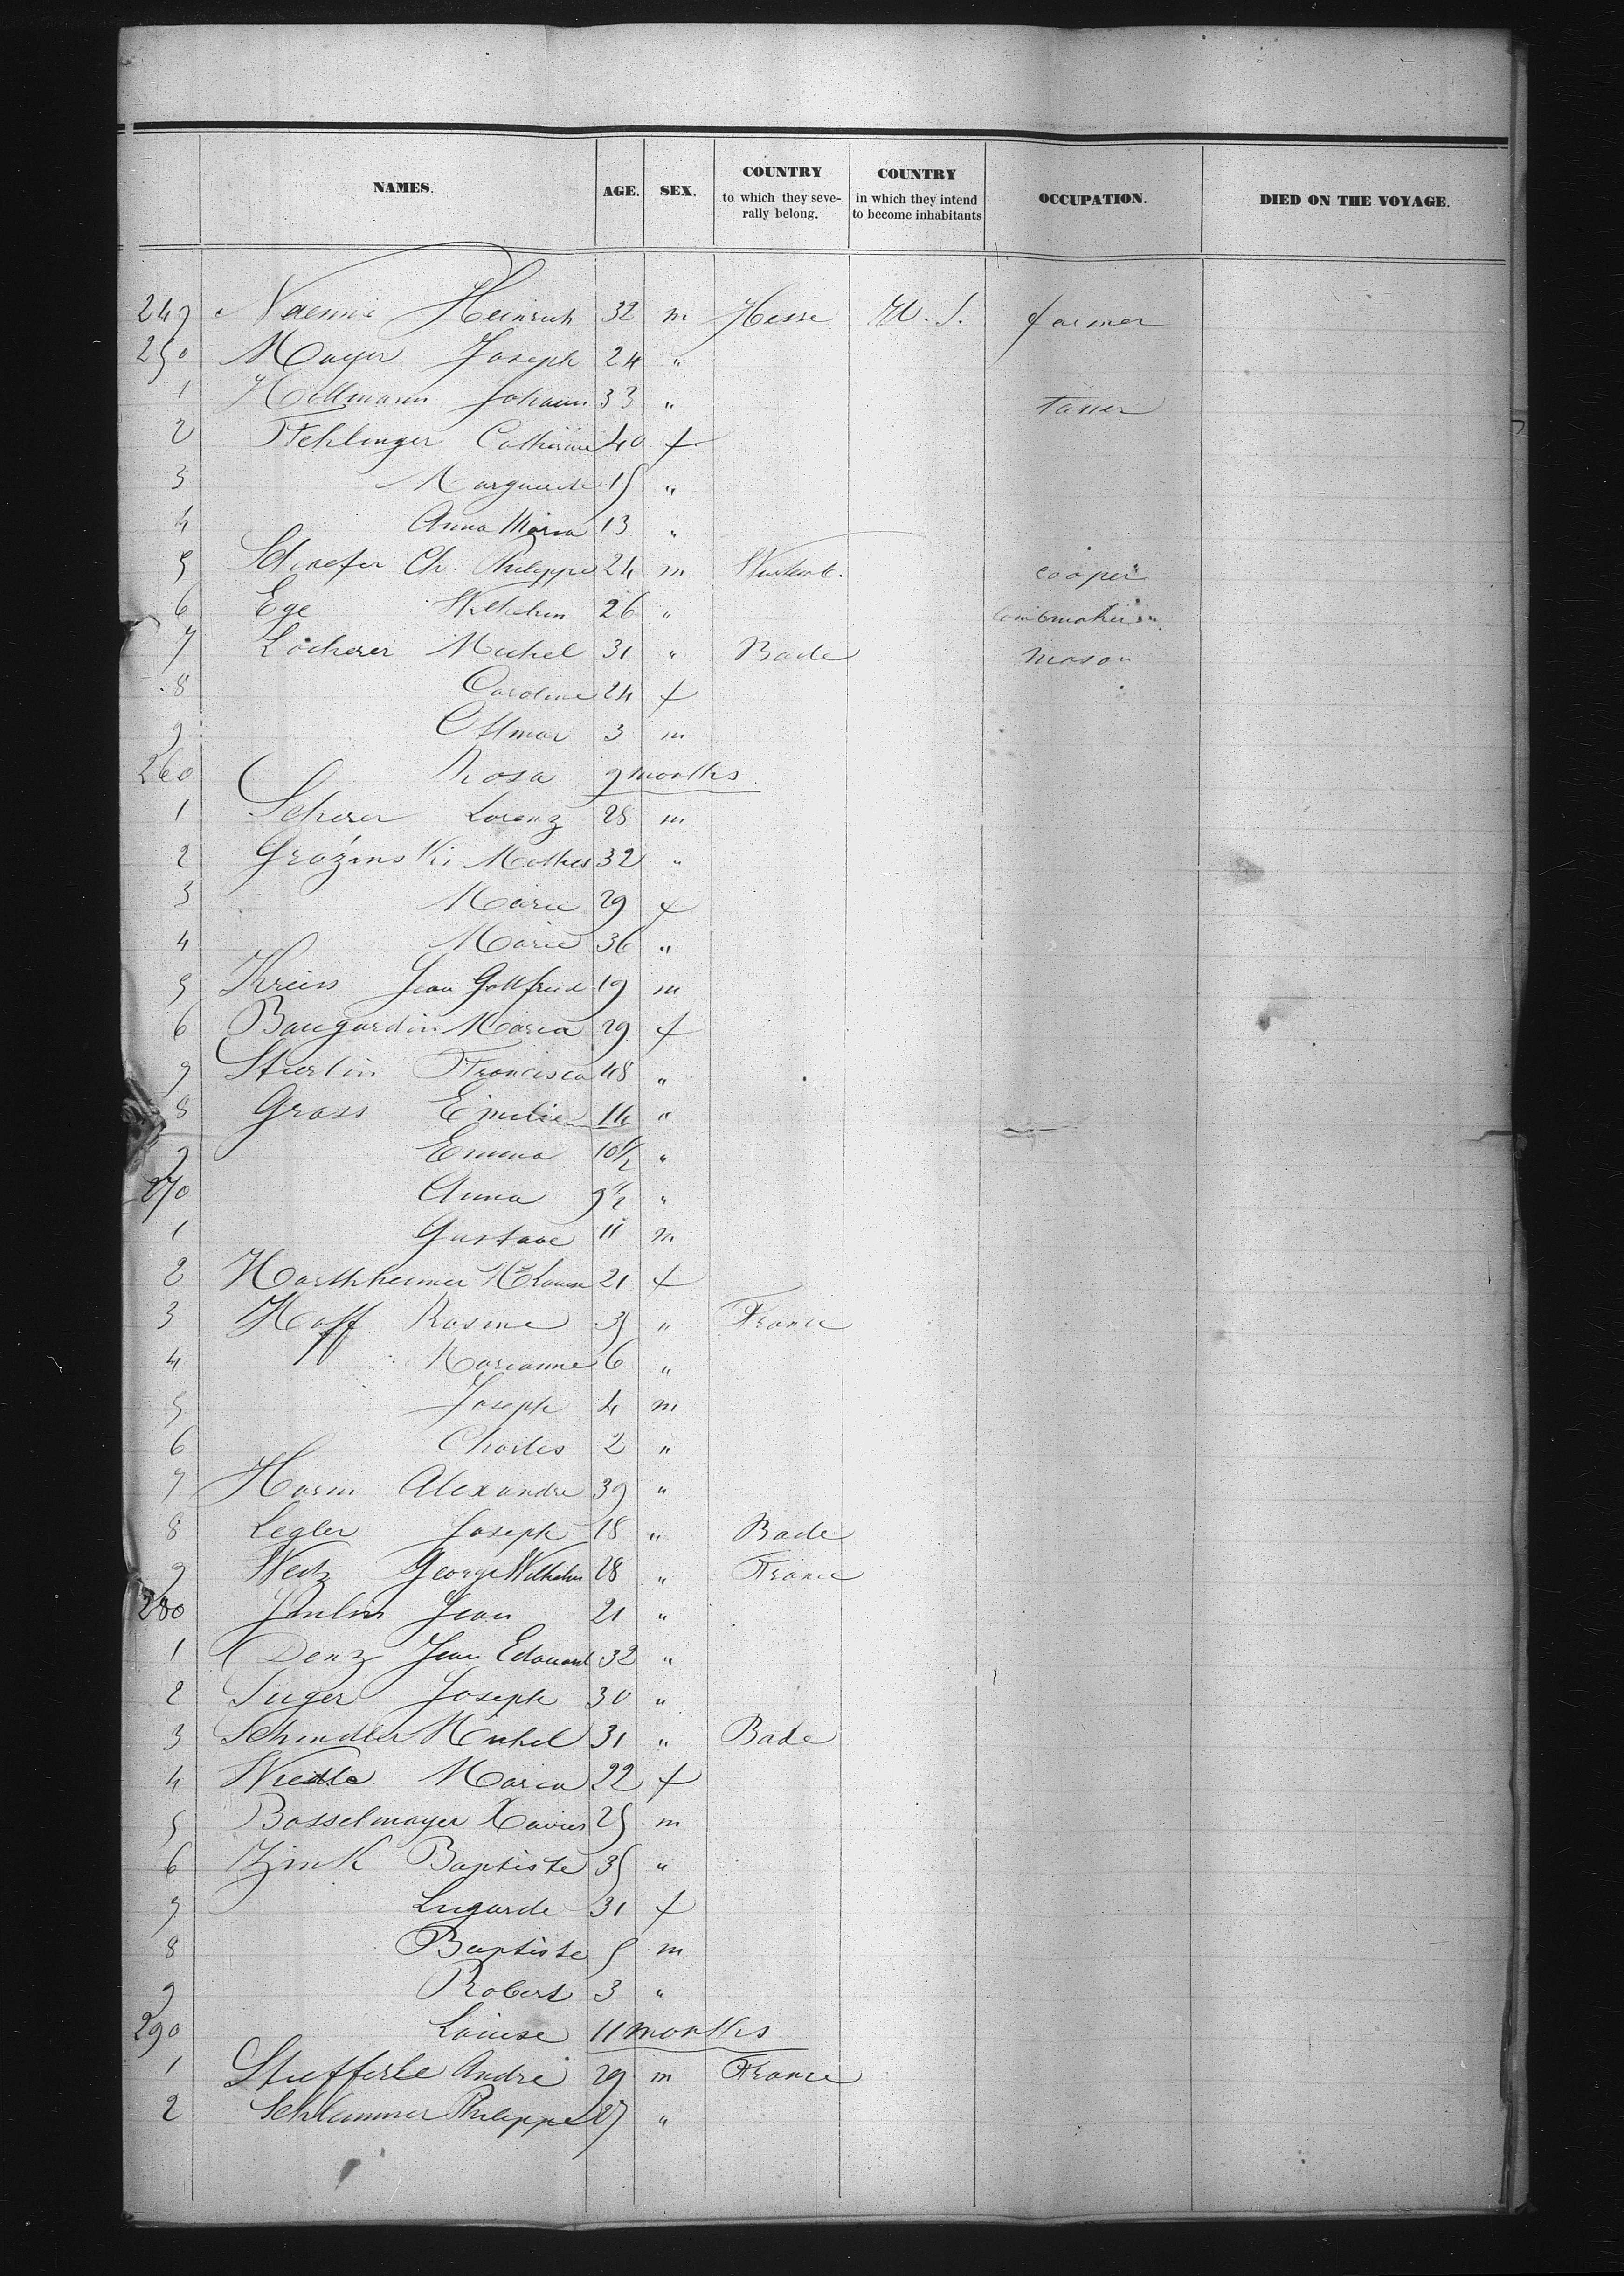 NAMES. AGE. SEX. COUNTRY to which they severally belong. COUNTRY in which they intend to become inhabitants OCCUPATION. DIED ON THE VOYAGE.
249 Naenni Heinrich 32 m Hesse U. S. farmer
250 Mayer Joseph 24 "
1 Hillmann Johann 33 " tanner
2 Fehlinger Catherine 40 f
3 Marguerite 15 "
4 Anna Maria 13 "
5 Schaefer Ch. Philippe 24 m Wurtemb. cooper
6 Ege Wilhelm 26 " combmaker
7 Locherer Michel 31 " Bade mason
8 Caroline 24 f
9 Ottmar 3 m
260 Rosa 9 months
1 Scherer Lorenz 28 m
2 Grozinski Mathes 32 "
3 Marie 29 f
4 Marie 36 "
5 Kreiss Jean Gottfried 19 m
6 Baugardin Maria 29 f
7 Stierlin Francisca 48 "
8 Grass Emilie 14 "
9 Emma 10 1/2 "
270 Anna 9 1/2 "
1 Gustave 11 m
2 Harthheimer Louise 21 f
3 Hoff Rosine 35 " France
4 Marianne 6 "
5 Joseph 4 m
6 Charles 2 "
7 Harm Alexandre 39 "
8 Legler Joseph 18 " Bade
9 Weitz George Wilhelm 28 " France
280 Jean 21 "
1 Denz Jean Edouard 32 "
2 Suger Joseph 30 "
3 Schindler Michel 31 " Bade
4 Maria 22 f
5 Bosselmayer Xavier 25 m
6 Zink Baptiste 35 "
7 Lugarde 31 f
8 Baptiste 5 m
9 Robert 3 "
290 Louise 11 months
1 Stiefferle André 29 m France
2 Schlammer Philippe 27 "